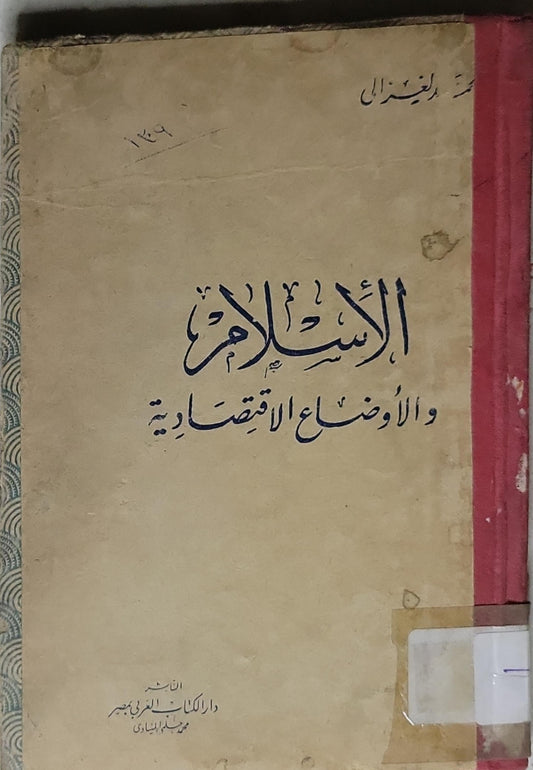 محمد الغزالى
١٣٠٩
الإسلام
والأوضاع الاقتصادية
الناشر
دار الكتاب العربي بمصر
محمد حلمي المنياوى